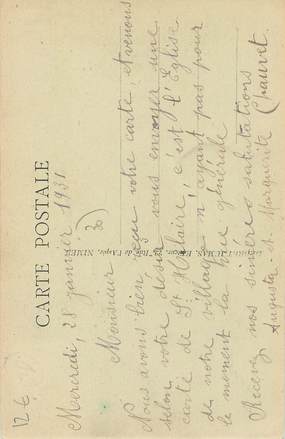 CARTE POSTALE
Mercredi, 28 janvier 1931
Monsieur
Nous avons bien reçu votre carte, et venons
selon votre désir vous envoyer une
carte de St Hilaire; c'est l'Eglise
de notre village n'ayant pas pour
le moment la vue générale
Recevez nos sincères salutations
Augusta & Marguerite Chauvet
NIMES
12 €